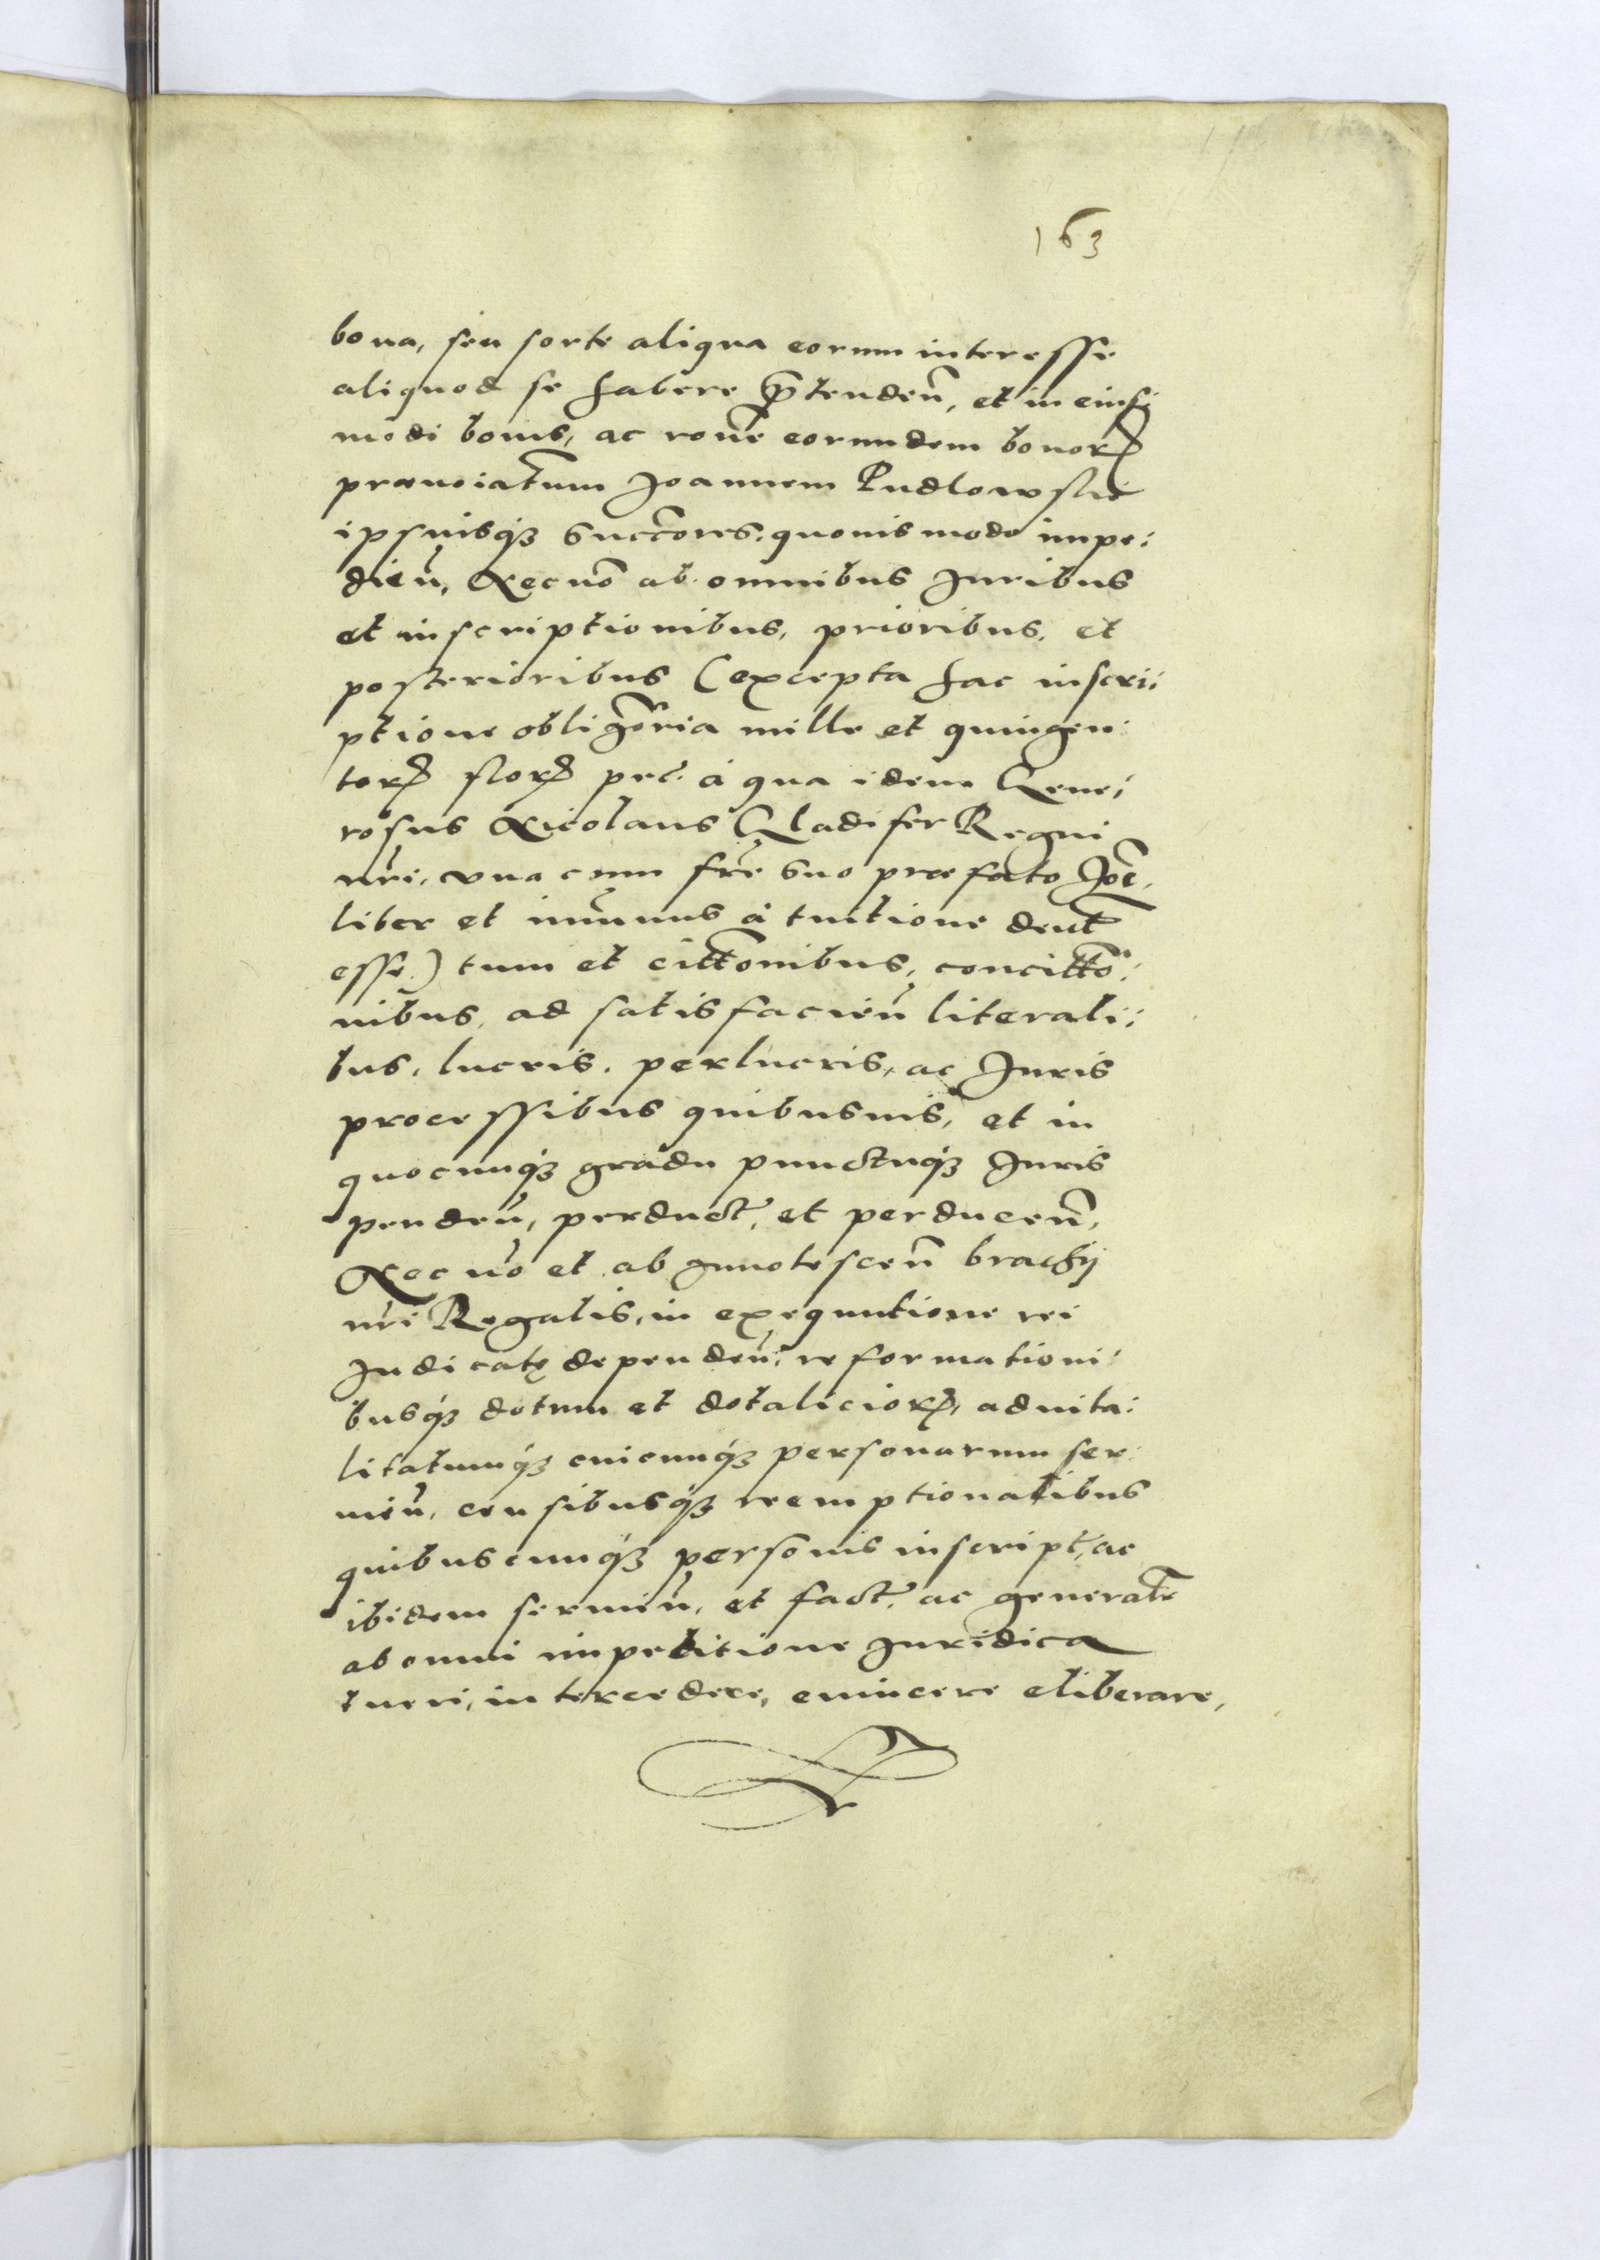 163
bona, seu sorte aliqua eorum interesse
aliquod se habere p̃tendeñ, et in eiusꝫ
modi bonis, ac roñe eorundem bonorꝝ
prænoiatum Joannem Pudlowski
ipsiusqꝫ succc̃ores, quouis modo impe:
dieñ, Necnõ ab omnibus Juribus
et inscriptionibus, prioribus, et
posterioribus (excepta hac inscri:
ptione obligat̃oria mille et quingen:
torꝝ florꝝ pec̃. à qua idem Gene:
rosus Nicolaus Gladifer Regni
nr̃i, vna cum fr̃e suo præfato Joẽ,
liber et immunis à tuitione deut̃
esse) tum et citt̃onibus, concitt̃o:
nibus, ad satisfacieñ literali:
bus, lucris, perlucris, ac Juris
processibus quibusuis, et in
quocunqꝫ gradu punctuqꝫ Juris
pendeñ, perduct̃, et perduceñ,
Nec nõ et ab innotesceñ brachij
nr̃i Regalis, in exequutione rei
Judicatę dependeñ, reformationi:
busqꝫ dotum et dotaliciorꝝ, aduita:
litatumqꝫ cuicunqꝫ personarum ser:
uieñ, censibusqꝫ reemptionalibus
quibuscunqꝫ personis inscript̃, ac
ibidem seruieñ, et fact̃, ac generalr̃
ab omni impeditione Juridica
tueri, intercedere, euincere eliberare,